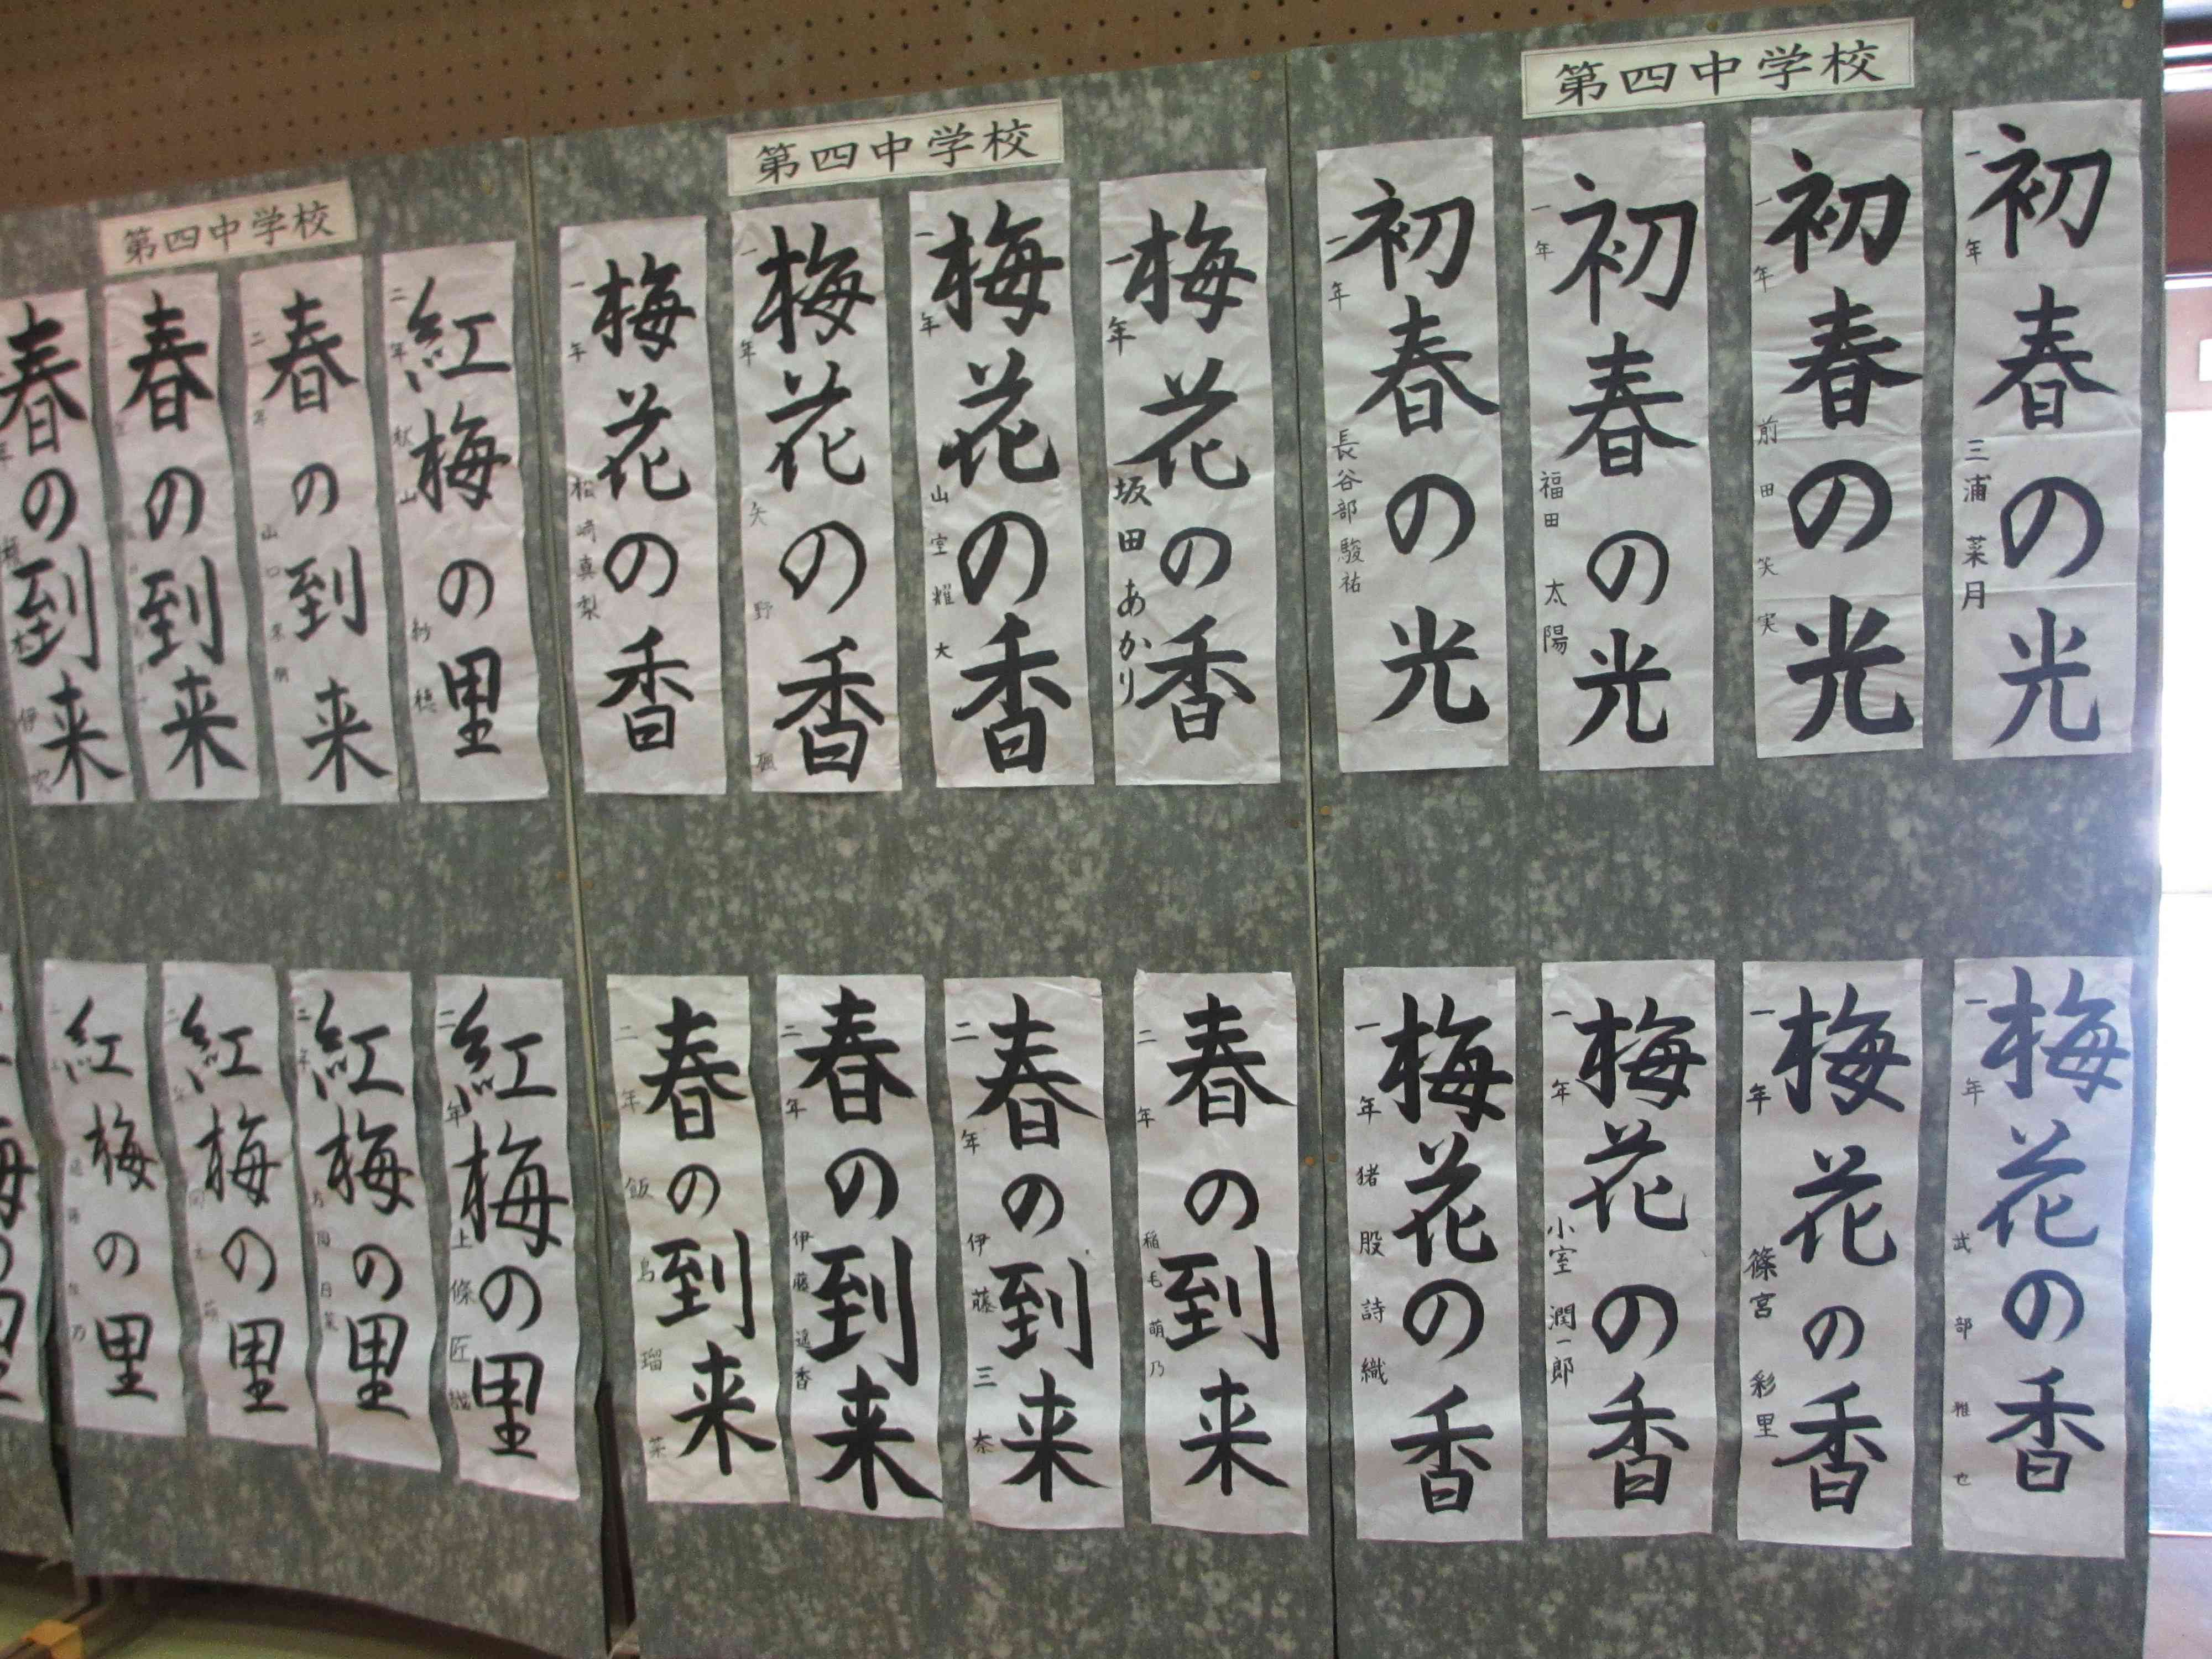 第四中学校
初春の光
一年 三浦菜月
初春の光
一年 前田笑実
初春の光
一年 福田太陽
初春の光
一年 長谷部駿祐
梅花の香
一年 武部雅也
梅花の香
一年 篠宮彩里
梅花の香
一年 小室潤一郎
梅花の香
一年 猪股詩織
第四中学校
梅花の香
一年 坂田あかり
梅花の香
一年 山室雄大
梅花の香
一年 矢野楓
梅花の香
一年 松崎真梨
春の到来
二年 稲毛萌乃
春の到来
二年 伊藤三奈
春の到来
二年 伊藤遥香
春の到来
二年 飯島瑠菜
第四中学校
紅梅の里
二年 秋山紗穂
春の到来
二年 山口
春の到来
春の到来
年 伊吹
紅梅の里
二年 上條匠
紅梅の里
二年
紅梅の里
紅梅の里